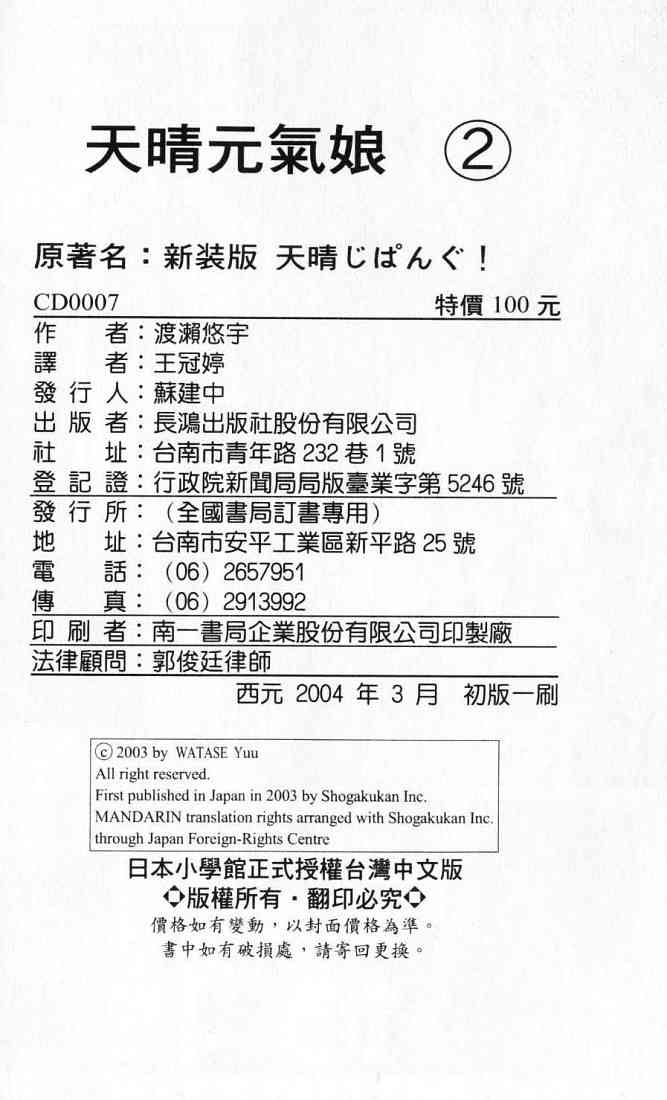 天晴元氣娘 ②
原著名：新装版 天晴じぱんぐ！
CD0007 特價 100 元
作者：渡瀨悠宇
譯者：王冠婷
發行人：蘇建中
出版者：長鴻出版社股份有限公司
社址：台南市青年路 232 巷 1 號
登記證：行政院新聞局局版臺業字第 5246 號
發行所：（全國書局訂書專用）
地址：台南市安平工業區新平路 25 號
電話：（06）2657951
傳真：（06）2913992
印刷者：南一書局企業股份有限公司印製廠
法律顧問：郭俊廷律師
西元 2004 年 3 月 初版一刷
ⓒ 2003 by WATASE Yuu
All right reserved.
First published in Japan in 2003 by Shogakukan Inc.
MANDARIN translation rights arranged with Shogakukan Inc.
through Japan Foreign-Rights Centre
日本小學館正式授權台灣中文版
◇版權所有・翻印必究◇
價格如有變動，以封面價格為準。
書中如有破損處，請寄回更換。